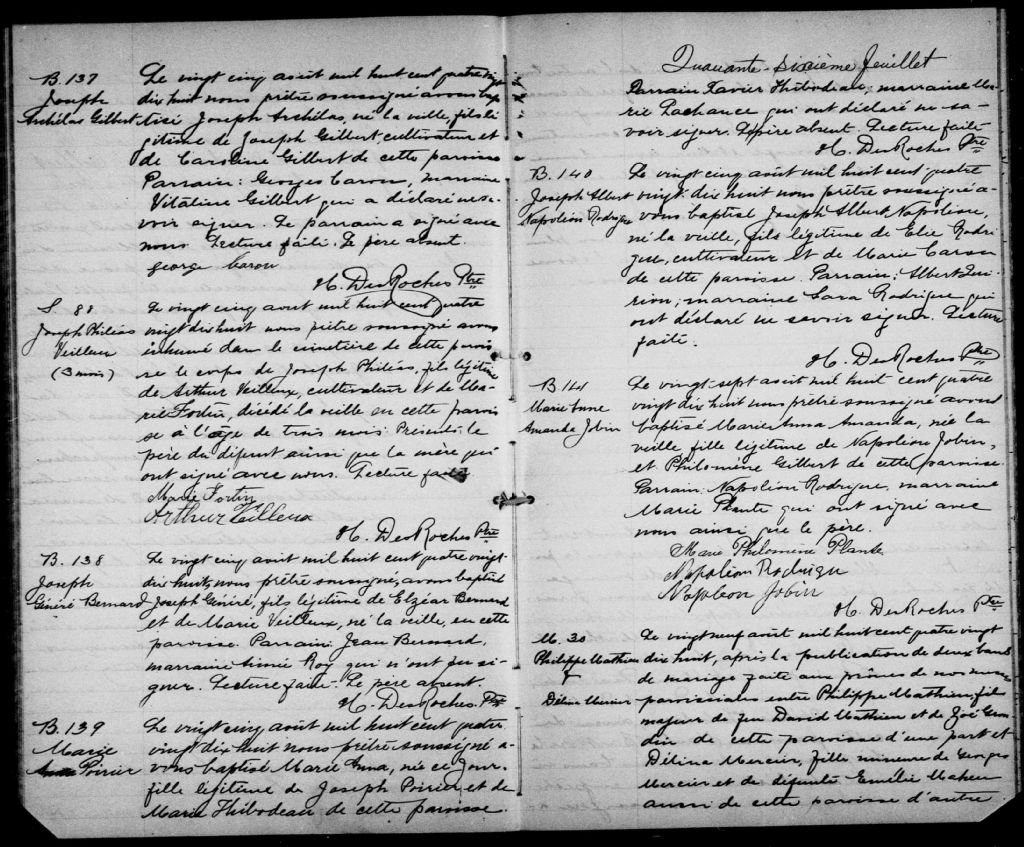 B. 137
Joseph
Archilas Gilbert
Le vingt cinq août mil huit cent quatre vingt
dix huit nous prêtre soussigné avons bap
tisé Joseph Archilas, né la veille, fils lé
gitime de Joseph Gilbert, cultivateur et
de Caroline Gilbert de cette paroisse
Parrain: Georges Caron, marraine
Vitaline Gilbert qui a déclaré ne sa-
voir signer. Le parrain a signé avec
nous. Lecture faite. Le père absent.
george Caron
H. DesRoches Ptre
S. 88
Joseph Philéas
Veilleux
(3 mois)
Le vingt cinq aout mil huit cent quatre
vingt dix huit nous prêtre soussigné avons
inhumé dans le cimetière de cette parois
se le corps de Joseph Philéas, fils légitime
de Arthur Veilleux, cultivateur et de Ma-
rie Fortin, décédé la veille en cette parois
se à l'âge de trois mois. Présents: le
père du défunt ainsi que la mère qui
ont signé avec nous. Lecture faite
Marie Fortin
Arthur Veilleux
H. DesRoches Ptre
B. 138
Joseph
Généré Bernard
Le vingt cinq août mil huit cent quatre vingt-
dix huit, nous prêtre soussigné, avons baptisé
Joseph Généré, fils légitime de Elzéar Bernard
et de Marie Veilleux, né la veille, en cette
paroisse. Parrain Jean Bernard,
marraine Aimée Roy qui n'ont pu si-
gner. Lecture faite. Le père absent.
H. DesRoches Ptre
B. 139
Marie
Anna Poirier
Le vingt cinq août mil huit cent quatre
vingt dix huit nous prêtre soussigné a-
vons baptisé Marie Anna, née ce jour,
fille légitime de Joseph Poirier et de
Marie Thibodeau de cette paroisse.
Quarante-Sixième feuillet
Parrain Xavier Thibodeau, marraine Ma-
rie Lachance qui ont déclaré ne sa-
voir signer. Le père absent. Lecture faite
H. DesRoches Ptre
B. 140
Joseph Albert
Napoléon Rodrigue
Le vingt cinq août mil huit cent quatre
vingt-dix huit nous prêtre soussigné a-
vons baptisé Joseph Albert Napoléon,
né la veille, fils légitime de Elie Rodri
gue, cultivateur et de Marie Caron
de cette paroisse. Parrain: Albert Qui-
rion; marraine Lara Rodrigue qui
ont déclaré ne savoir signer. Lecture
faite.
H. DesRoches Ptre
B 141
Marie Anne
Amanda Jobin
Le vingt-sept août mil huit cent quatre
vingt dix huit nous prêtre soussigné avons
baptisé Marie Anna Amanda, née la
veille fille légitime de Napoléon Jobin,
et Philomène Gilbert de cette paroisse
Parrain: Napoléon Rodrigue, marraine
Marie Plante qui ont signé avec
nous ainsi que le père.
Marie Philomène Plante
Napoléon Rodrigue
Napoleon Jobin
H. DesRoches Ptre
M. 30
Philippe Mathieu
&
Délina Mercier
Le vingt neuf août mil huit cent quatre vingt
dix huit, après la publication de deux bans
de mariage faite aux prônes de nos messes
paroissiales entre Philippe Mathieu, fils
majeur de feu David Mathieu et de Zoé Gron
din de cette paroisse d'une part et
Délina Mercier, fille mineure de Georges
Mercier et de défunte Emélie Maheu
aussi de cette paroisse d'autre